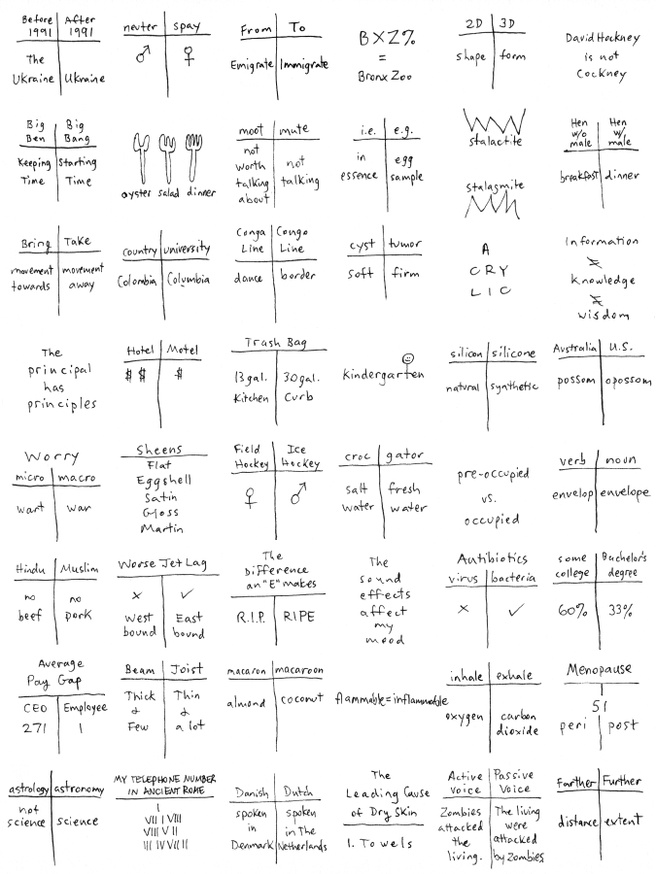 Before | After
1991 | 1991
The
Ukraine | Ukraine
neuter | spay
♂ | ♀
From | To
Emigrate | Immigrate
BXZ%
=
Bronx Zoo
2D | 3D
shape | form
David Hockney
is not
Cockney
Big | Big
Ben | Bang
Keeping | Starting
Time | Time
oyster salad dinner
moot | mute
not
worth | not
talking | talking
about
i.e. | e.g.
in | egg
essence | sample
stalactite
stalagmite
Hen | Hen
w/o | w/
male | male
breakfast | dinner
Bring | Take
movement | movement
towards | away
country | university
Colombia | Columbia
Conga | Congo
Line | Line
dance | border
cyst | tumor
soft | firm
A
CRY
LIC
Information
≠
Knowledge
≠
wisdom
The
principal
has
principles
Hotel | Motel
$$ | $
Trash Bag
13 gal. | 30 gal.
Kitchen | Curb
Kindergarten
silicon | silicone
natural | synthetic
Australia | U.S.
possom | opossom
Worry
micro | macro
wart | war
Sheens
Flat
Eggshell
Satin
Gloss
Martin
Field | Ice
Hockey | Hockey
♀ | ♂
croc | gator
salt | fresh
water | water
pre-occupied
vs.
occupied
verb | noun
envelop | envelope
Hindu | Muslim
no | no
beef | pork
Worse Jet Lag
× | ✓
West | East
bound | bound
The
Difference
an "E" makes
R.I.P. | RIPE
The
sound
effects
affect
my
mood
Antibiotics
virus | bacteria
× | ✓
some | Bachelor's
college | degree
60% | 33%
Average
Pay Gap
CEO | Employee
271 | 1
Beam | Joist
Thick | Thin
& | &
Few | a lot
macaron | macaroon
almond | coconut
flammable=inflammable
inhale | exhale
oxygen | carbon
dioxide
Menopause
51
peri | post
astrology | astronomy
not
science | science
MY TELEPHONE NUMBER
IN ANCIENT ROME
Danish | Dutch
spoken | spoken
in | in The
Denmark | Netherlands
The
Leading Cause
of Dry Skin
1. Towels
Active | Passive
Voice | Voice
Zombies | The living
attacked | were
the | attacked
living. | by zombies
Farther | Further
distance | extent